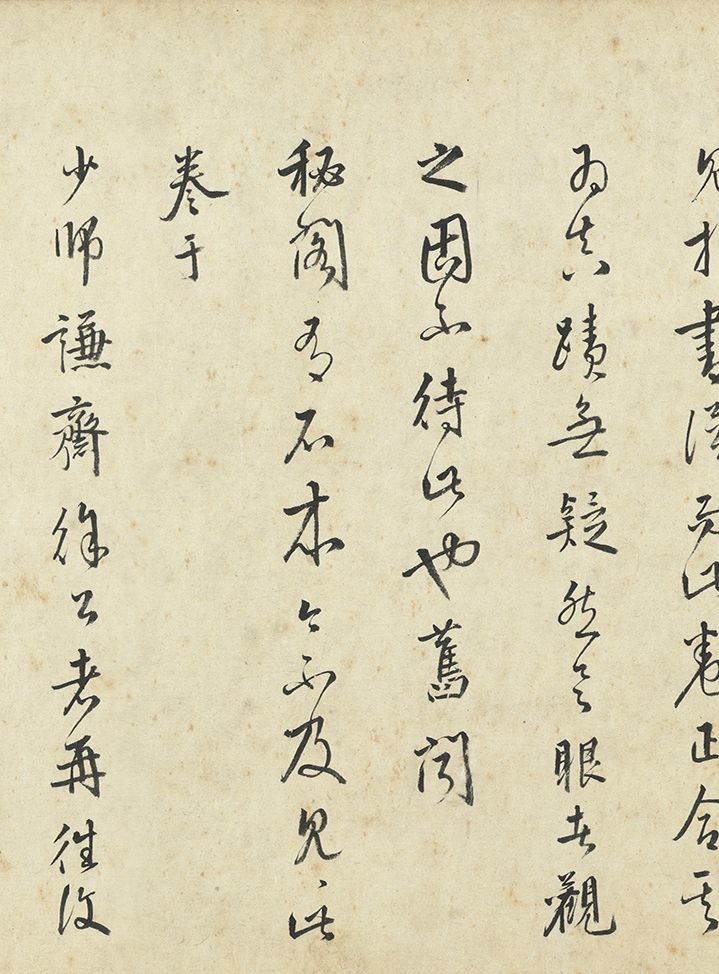 見於書而此卷正合其
為真蹟無疑然具眼者觀
之固不待此也舊聞
秘閣有石本今不及見此
卷于
少師謙齋徐公者再往復